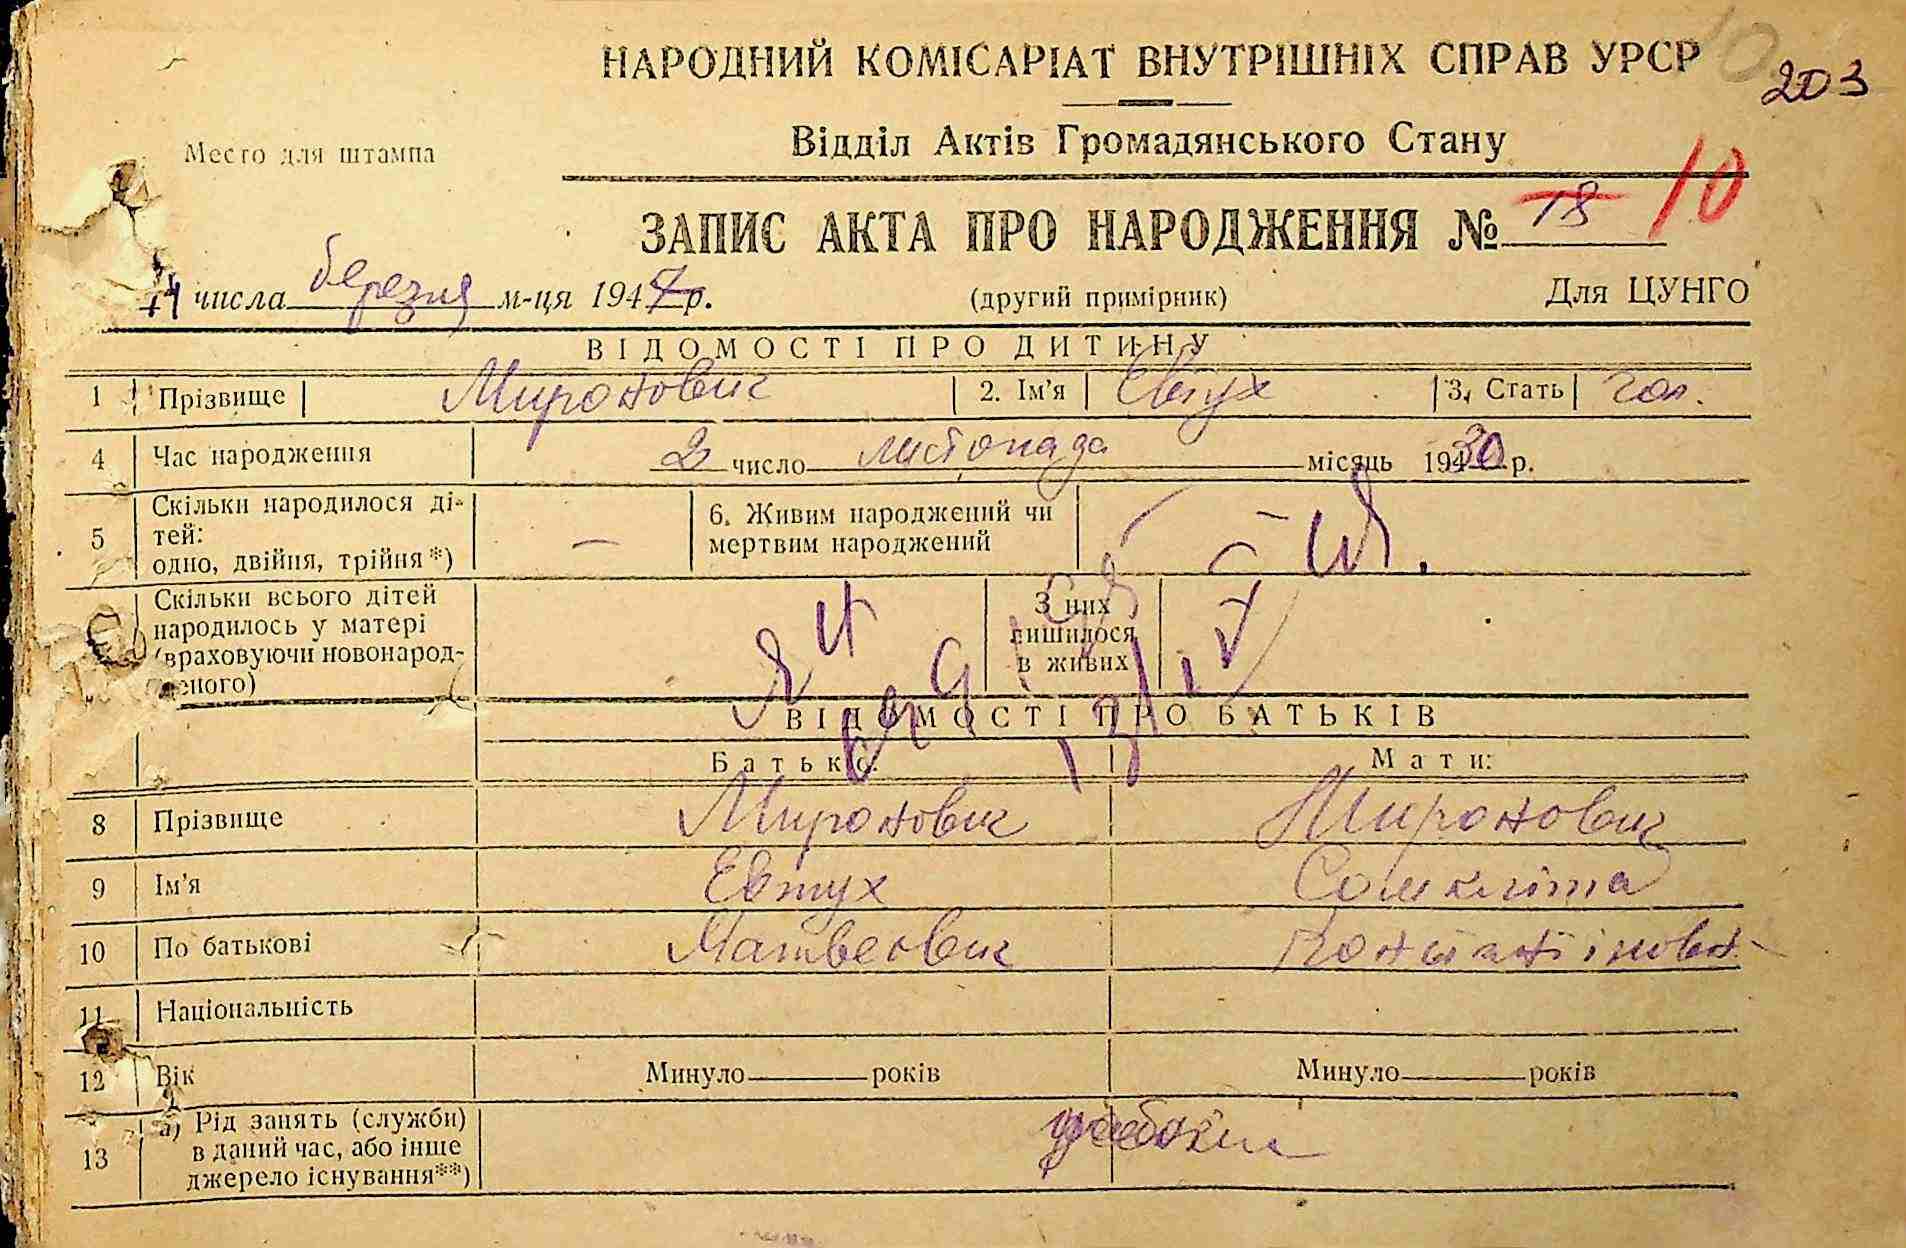 10
НАРОДНИЙ КОМІСАРІАТ ВНУТРІШНІХ СПРАВ УРСР
203
Место для штампа
Відділ Актів Громадянського Стану
ЗАПИС АКТА ПРО НАРОДЖЕННЯ № 18 10
14 числа березня м-ця 1947 р. (другий примірник) Для ЦУНГО
ВІДОМОСТІ ПРО ДИТИНУ
1 Прізвище Миронович 2. Ім'я Евтух 3. Стать чол.
4 Час народження 2 число листопада місяць 1930 р.
5 Скільки народилося дітей: одно, двійня, трійня*) — 6. Живим народжений чи мертвим народжений
Скільки всього дітей народилось у матері (враховуючи новонародженого) З них лишилося в живих
ВІДОМОСТІ ПРО БАТЬКІВ
Батько: Мати:
8 Прізвище Миронович Миронович
9 Ім'я Евтух Сомкліта
10 По батькові Матвеович
11 Національність
12 Вік Минуло років Минуло років
13 а) Рід занять (служби) в даний час, або інше джерело існування**)